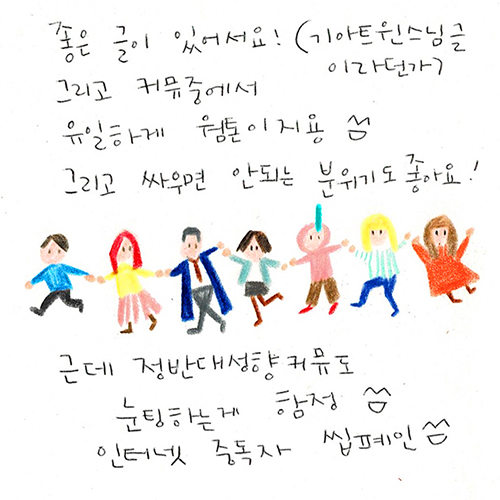 좋은 글이 있어서요! (기아트윈스님글
이라던가)
그리고 커뮤중에서
유일하게 웜톤이지용 ᄊᆢ
그리고 싸우면 안되는 분위기도 좋아요!
근데 정반대성향커뮤도
눈팅하는게 함정
인터넷 중독자 씹폐인